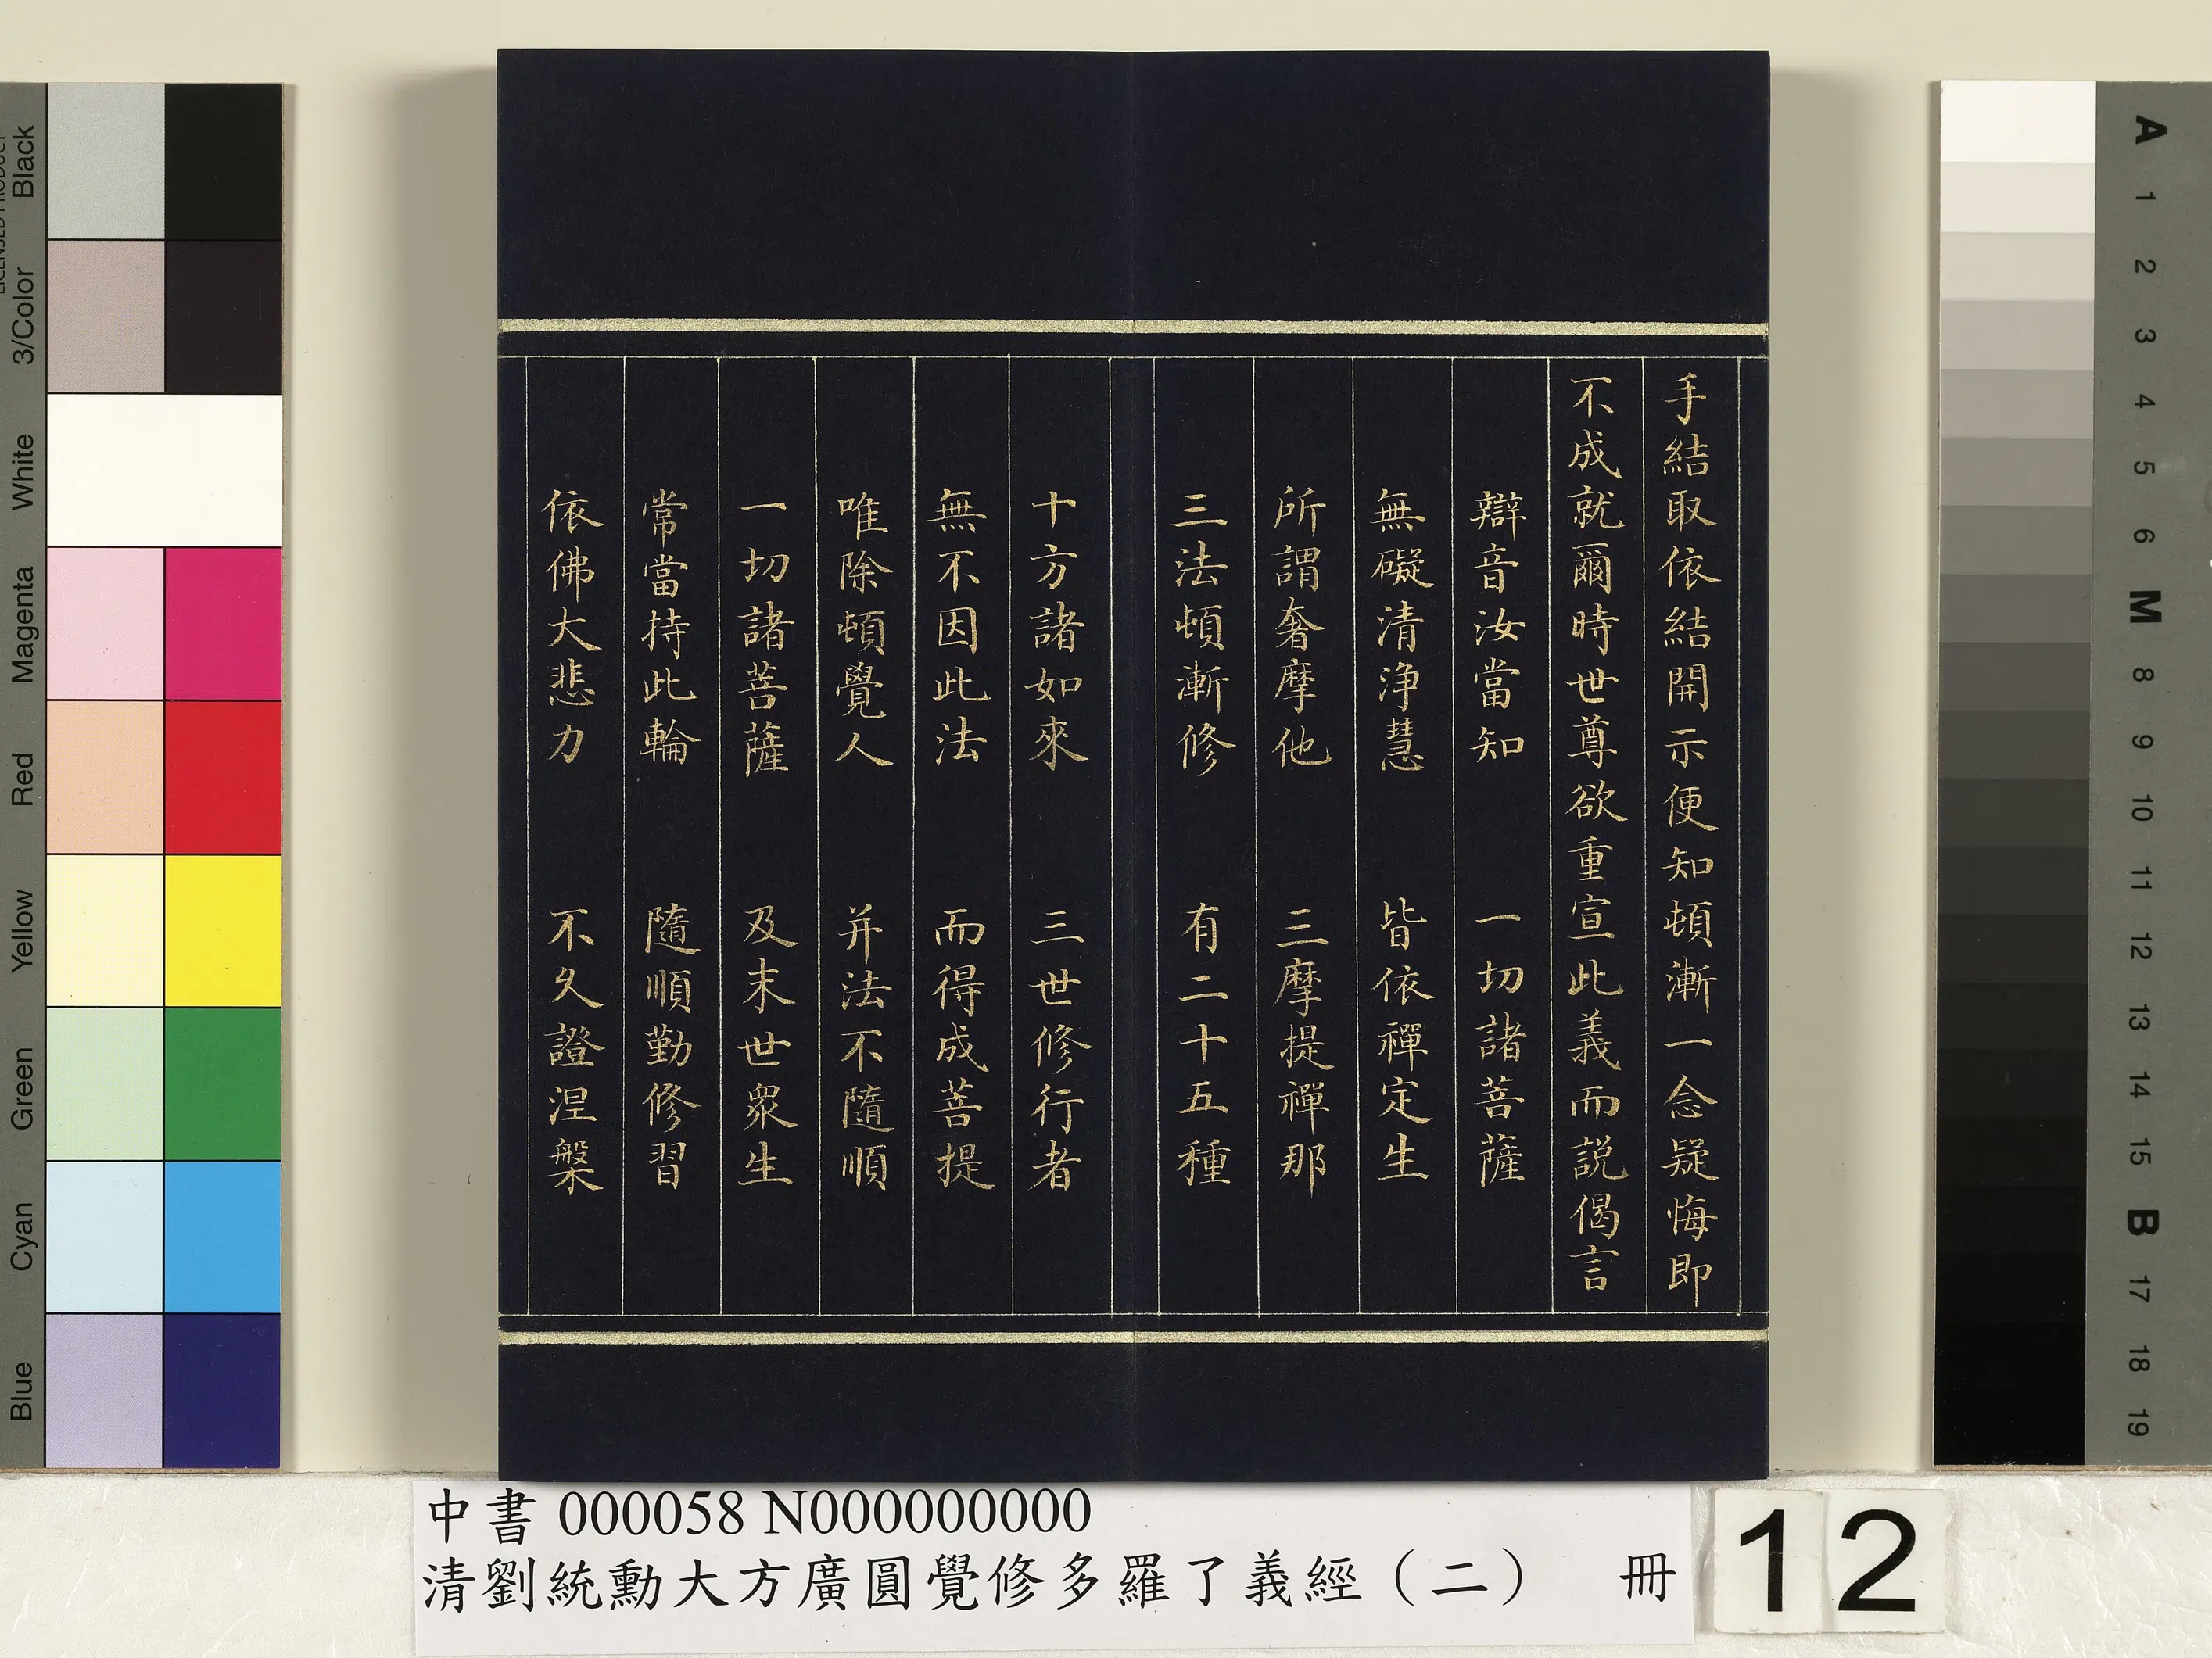 手結取依結開示便知頓漸一念疑悔即
不成就爾時世尊欲重宣此義而説偈言
辯音汝當知 一切諸菩薩
無礙清淨慧 皆依禪定生
所謂奢摩他 三摩提禪那
三法頓漸修 有二十五種
十方諸如來 三世修行者
無不因此法 而得成菩提
唯除頓覺人 并法不隨順
一切諸菩薩 及末世衆生
常當持此輪 隨順勤修習
依佛大悲力 不久證涅槃
中書 000058 N000000000
清劉統勳大方廣圓覺修多羅了義經（二） 冊
12
Black
3/Color
White
Magenta
Red
Yellow
Green
Cyan
Blue
A
1
2
3
4
5
6
M
8
9
10
11
12
13
14
15
B
17
18
19